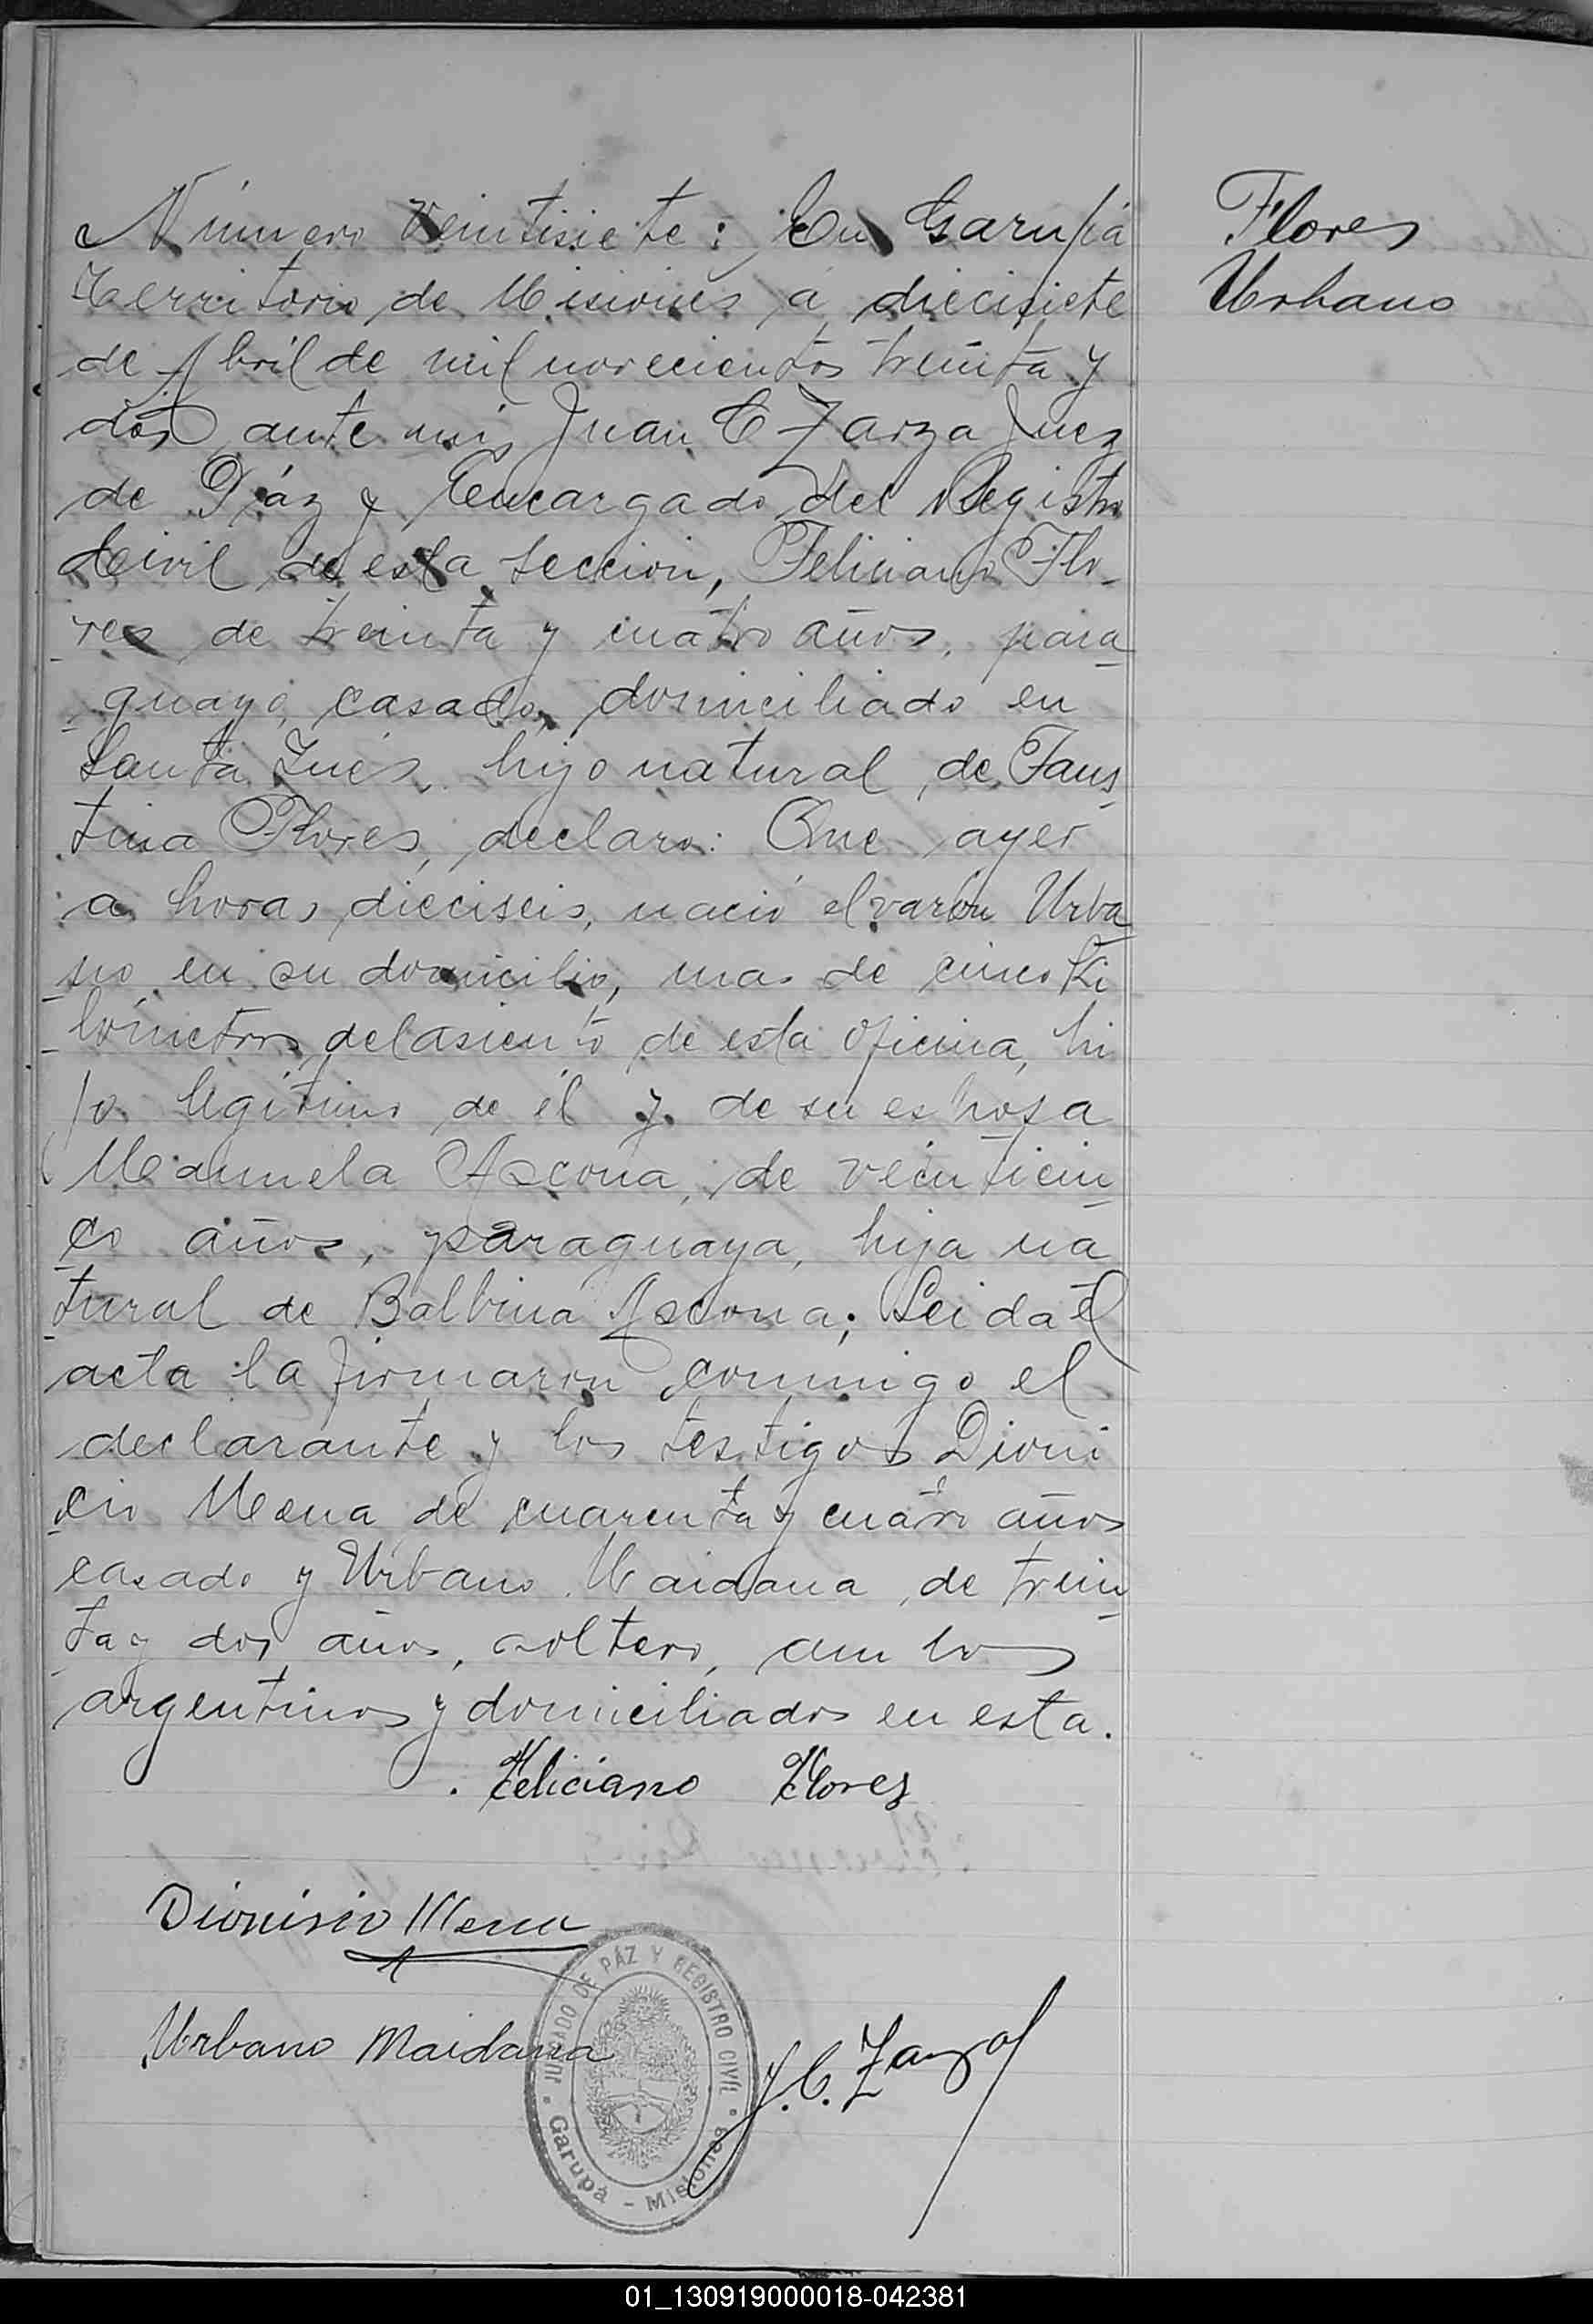 Flores
Urbano
Número veintisiete: En Garupá
Territorio de Misiones a diecisiete
de Abril de mil novecientos treinta y
dos ante mí, Juan C Zarza Juez
de Páz y Encargado del Registro
Civil de esta sección, Feliciano Flo-
res de treinta y cuatro años, para
guayo, casado, domiciliado en
Santa Inés, hijo natural de Faus
tina Flores, declaro: Que ayer
a horas dieciseis, nació el varón Urba
no, en su domicilio, mas de cinco Ki
lometros del asiento de esta Oficina, hi
jo legítimo de él y de su esposa
Manuela Ascona, de veinticin
co años, paraguaya, hija na
tural de Balbina Ascona; Leida el
acta la firmaron conmigo el
declarante y los testigos Dioni
cio Mena de cuarenta y cuatro años
casado y Urbano Maidana, de trein
ta y dos años, soltero, ambos
argentinos y domiciliados en esta.
Feliciano Flores
Dionisio Mena
Urbano Maidana
J. C. Zarza
JUZGADO DE PAZ Y REGISTRO CIVIL
Garupá - Misiones
01_130919000018-042381